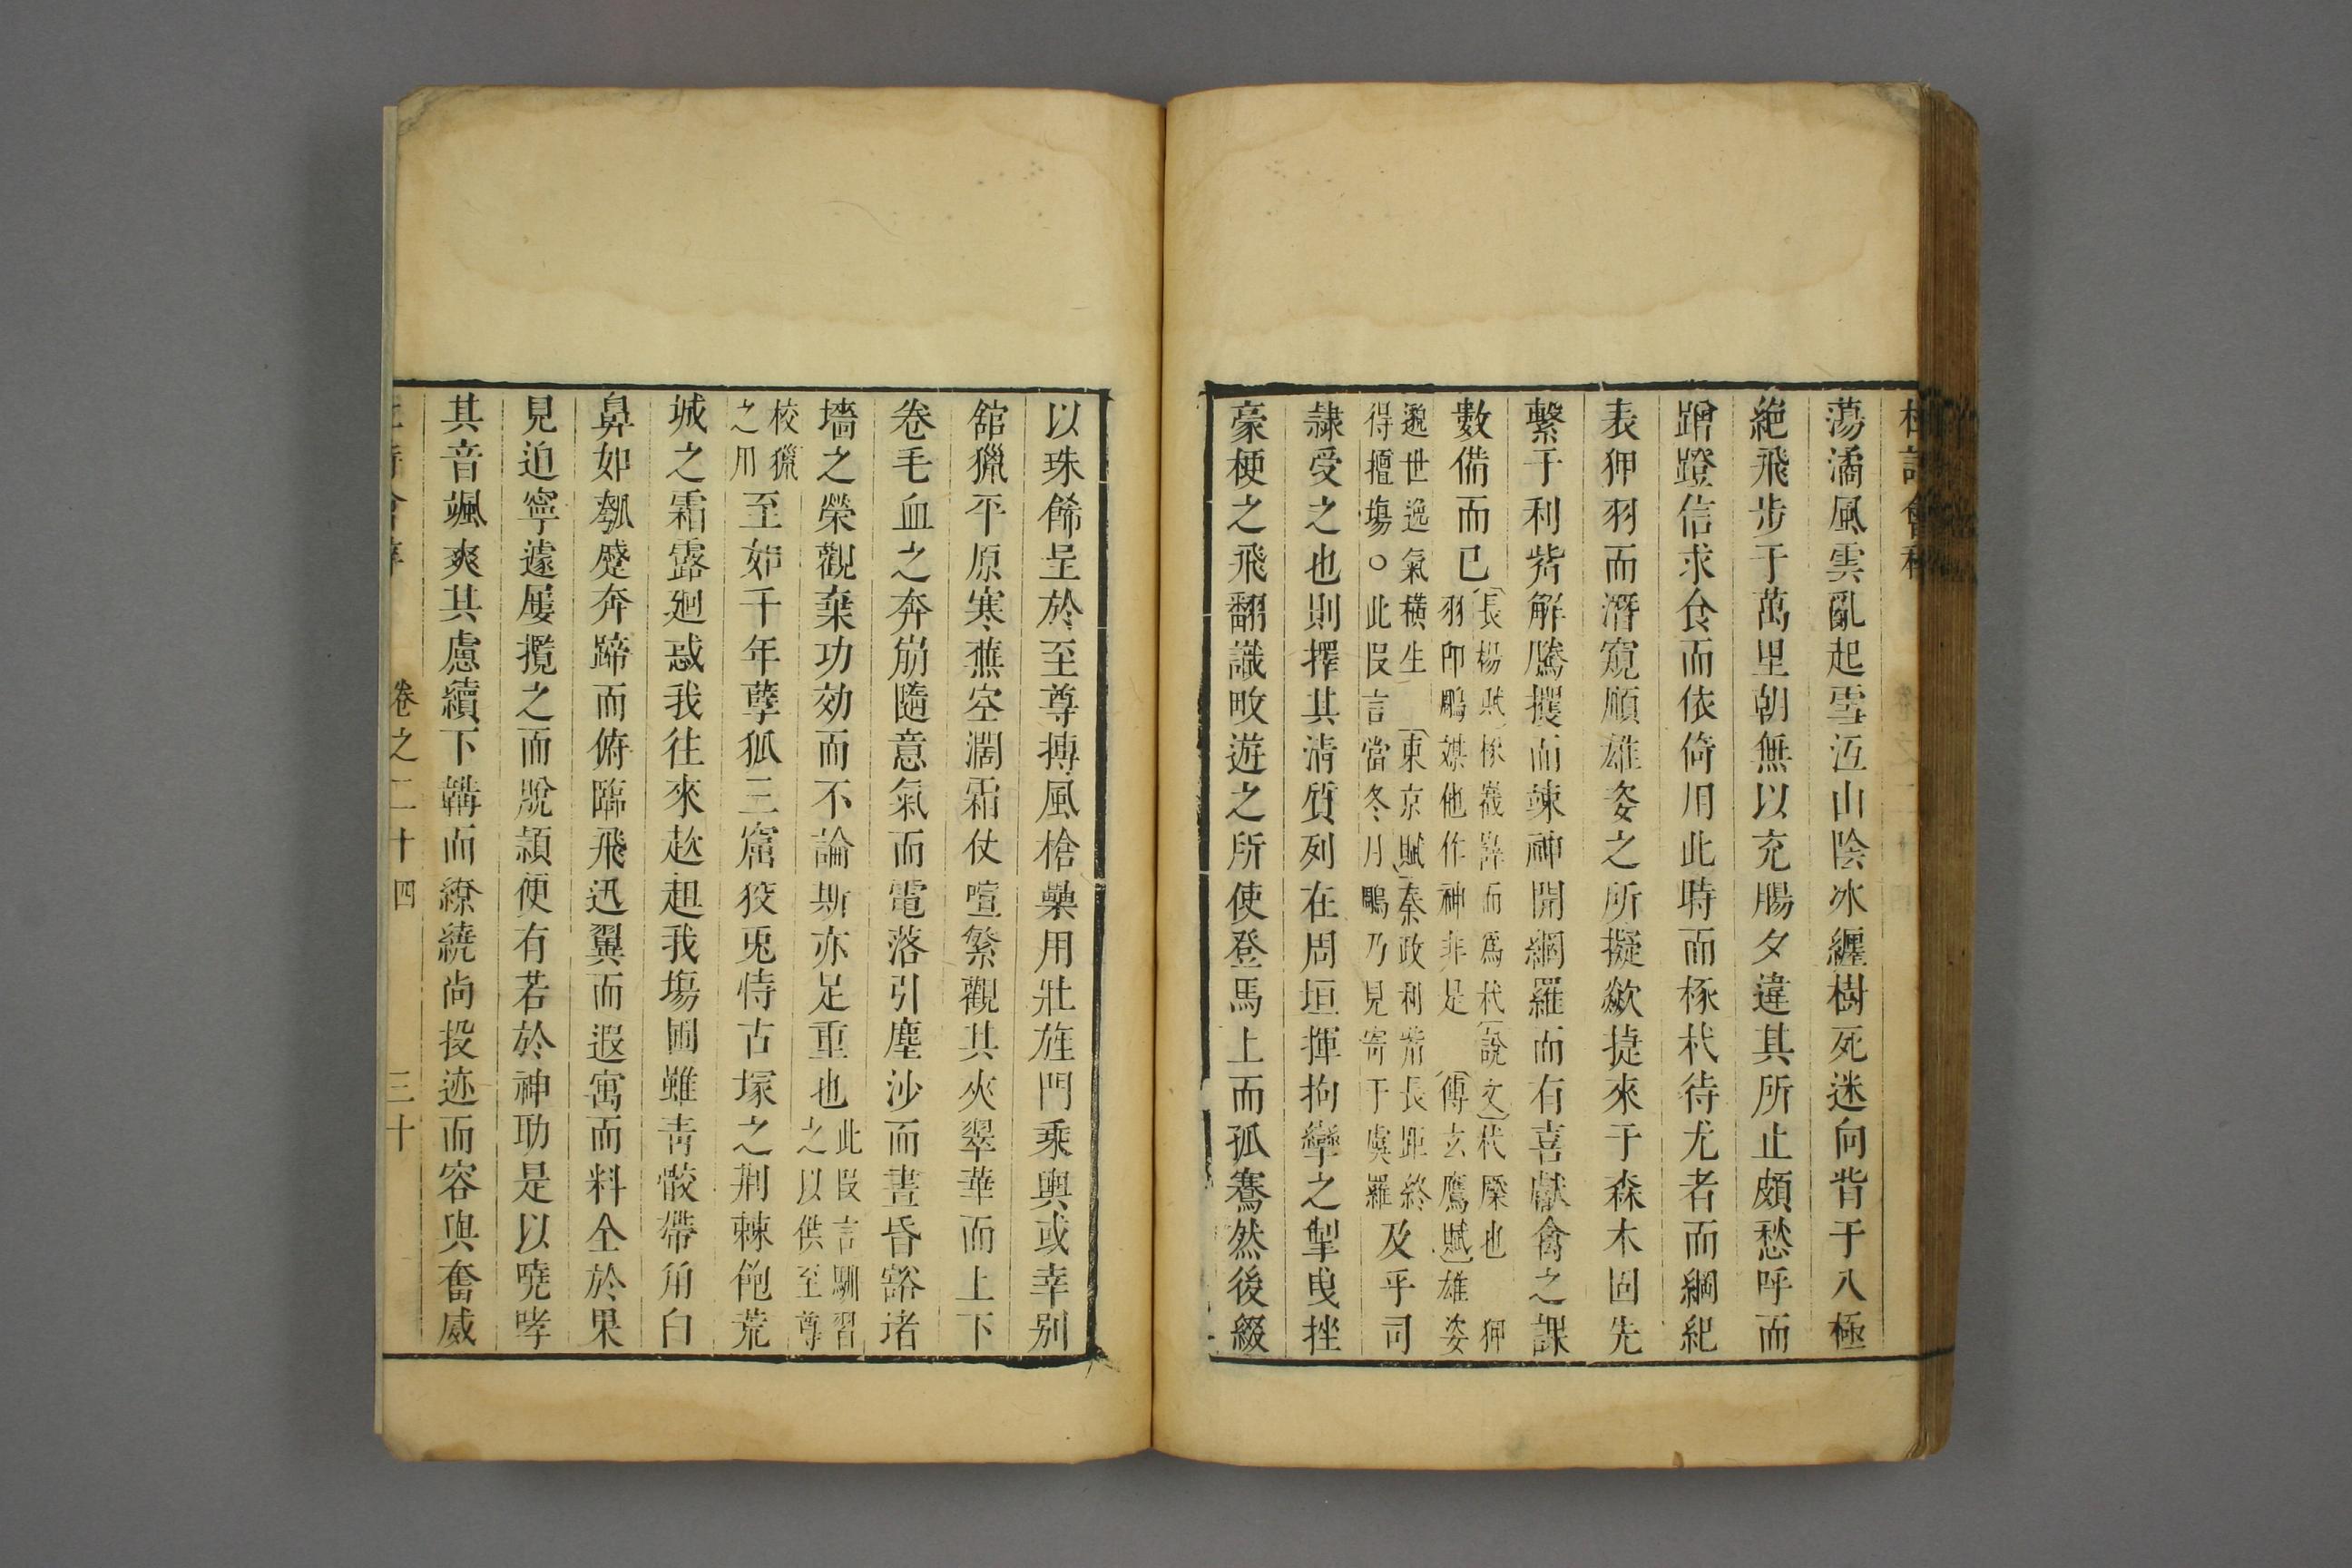 杜詩會稡
蕩潏風雲亂起雪沍山陰冰纒樹死迷向背于八極
絶飛步于萬里朝無以充腸夕違其所止頗愁呼而
蹭蹬信求食而依倚用此時而椓杙待尤者而綱紀
表狎羽而潛窺順雄姿之所擬欻捷來于森木固先
繫于利觜解騰攫而竦神開網羅而有喜獻禽之課
數備而已
〔長楊賦〕椓嶻嶭而爲杙〔說文〕杙橜也 狎
羽卽鵰媒他作神非是 〔傅玄鷹賦〕雄姿
邈世逸氣橫生〔東京賦〕秦政利觜長距終
得擅塲○此叚言當冬月鵰乃見寄于虞羅
及乎司
隷受之也則擇其清質列在周垣揮拘攣之掣曳挫
豪梗之飛翻識畋遊之所使登馬上而孤鶱然後綴
以珠餙呈於至尊搏風槍櫐用壯旌門乘輿或幸别
舘獵平原寒蕪空濶霜仗喧繁觀其夾翠華而上下
卷毛血之奔崩隨意氣而電落引塵沙而晝昏豁诸
墻之榮觀棄功効而不論斯亦足重也
此叚言馴習
之以供至尊
校獵
之用
至如千年孽狐三窟狡兎恃古塚之荆棘飽荒
城之霜露廻惑我往來趑趄我塲圃雖青骹帶角白
鼻如瓠蹙奔蹄而俯臨飛迅翼而遐寓而料全於果
見迫寧遽屢攬之而脫頴便有若於神功是以嘵哮
其音颯爽其慮續下韝而繚繞尚投迹而容與奮威
卷之二十四
三十